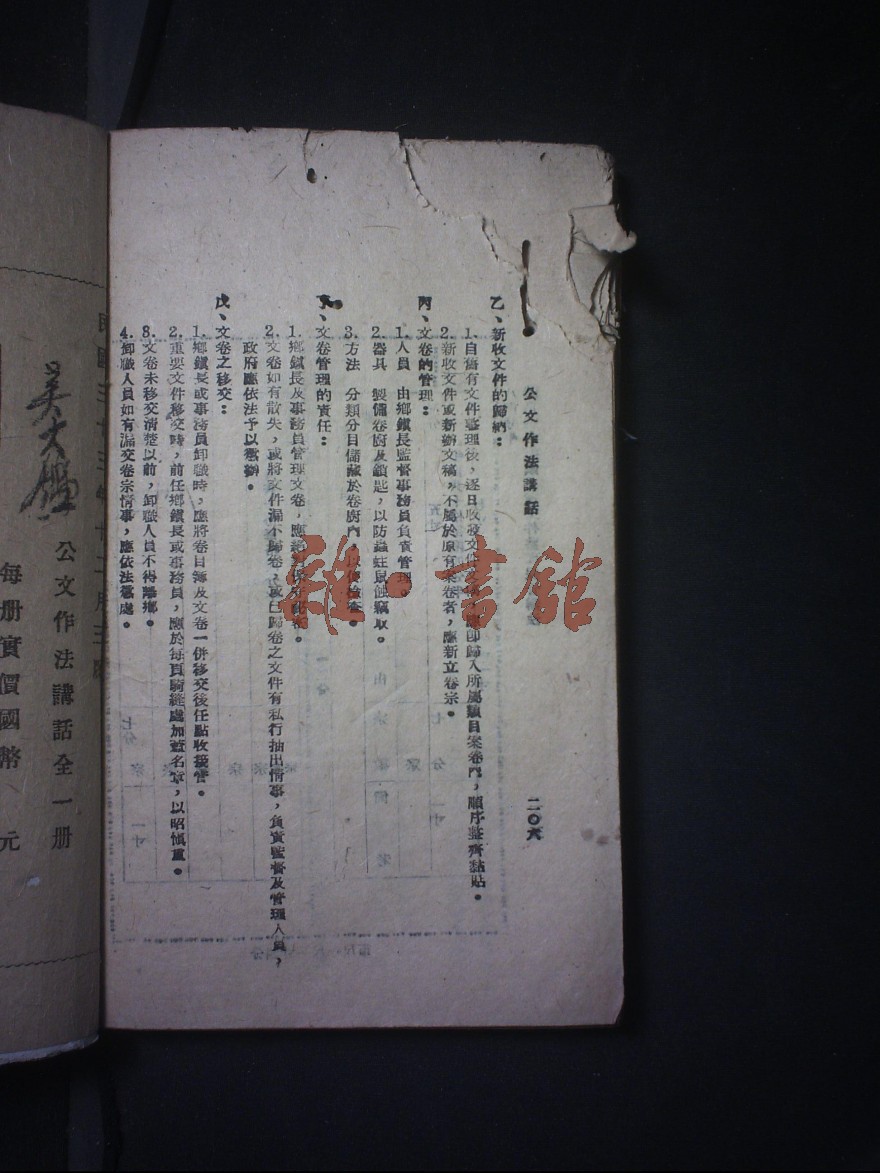 公文作法講話
二〇六
乙、新收文件的歸納：
1.自舊有文件整理後，逐日收發文件 應即歸入所屬類目案卷內，順序整齊黏貼。
2.新收文件或新辦文稿，不屬於原有案卷者，應新立卷宗。
丙、文卷的管理：
1.人員　由鄉鎮長監督事務員負責管理。
2.器具　製備卷廚及鎖匙，以防蟲蛀鼠蝕竊取。
3.方法　分類分目儲藏於卷廚內，以便檢查。
丁、文卷管理的責任：
1.鄉鎮長及事務員管理文卷，應絕對保守秘密。
2.文卷如有散失，或將文件漏不歸卷，或已歸卷之文件有私行抽出情事，負責監督及管理人員，
政府應依法予以懲辦。
戊、文卷之移交：
1.鄉鎮長或事務員卸職時，應將卷目簿及文卷一併移交後任點收接管。
2.重要文件移交時，前任鄉鎮長或事務員，應於每頁騎縫處加蓋名章，以昭慎重。
3.文卷未移交清楚以前，卸職人員不得離鄉。
4.卸職人員如有漏交卷宗情事，應依法懲處。
雜·書館
民國三十三年十二月三版
公文作法講話全一册
每册實價國幣　元